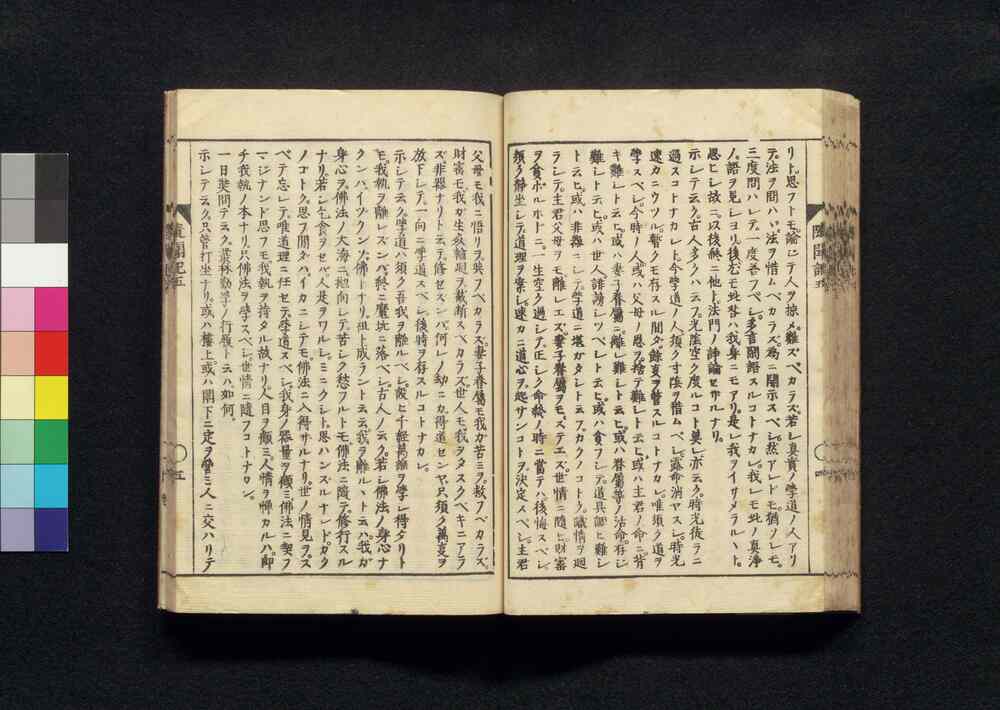 リト思フトモ論ニテ人ヲ掠メ難ズベカラズ若シ真實ノ學道ノ人アリ
テ法ヲ問ハヾ法ヲ惜ムベカラズ為ニ開示スベシ然アレドモ猶ソレモ
三度問ハレテ一度荅フベシ多言閑語スルコトナカレ我レモ此ノ真浄
ノ語ヲ見シヨリ後尤モ此咎ハ我身ニモアリ是レ我ヲイサメラルヽト
思ヒシ故ニ以後終ニ他ト法門ノ諍論セザルナリ
示シテ云ク古人多クハ云フ光陰空ク度ルコト莫レ亦云ク時光徒ラニ
過スコトナカレト今學道ノ人須ク寸陰ヲ惜ムベシ露命消ヤスシ時光
速カニウツル暫クモ存スル間ダ餘夏ヲ管スルコトナカレ唯須ク道ヲ
學スベシ今時ノ人或ハ父母ノ恩ヲ捨テ難シト云ヒ或ハ主君ノ命ニ背
キ難シト云ヒ或ハ妻子眷屬ニ離レ難シト云ヒ或ハ眷屬等ノ活命存ジ
難シト云ヒ或ハ世人誹謗シツベシト云ヒ或ハ貧フシテ道具調ヒ難シ
ト云ヒ或ハ非器ニシテ學道ニ堪ガタシト云フカクノコトク識情ヲ廻
ラシテ主君父母ヲモ離レエズ妻子眷屬ヲモステエズ世情ニ隨ヒ財寳
ヲ貪ボルホドニ一生空ク過シテ正シク命終ノ時ニ當テハ後悔スベシ
須ク静坐シテ道理ヲ案シ速カニ道心ヲ起サンコトヲ決定スベシ主君
父母モ我ニ悟リヲ與フベカラズ妻子眷屬モ我カ苦ミヲ救フベカラズ
財寳モ我ガ生死輪廻ヲ截断スベカラズ世人モ我ヲタスクベキニアラ
ズ非器ナリト云テ修セズンバ何レノ劫ニカ得道センヤ只須ク萬夏ヲ
放下シテ一向ニ學道スベシ後時ヲ存スルコトナカレ
示シテ云ク學道ハ須ク吾我ヲ離ルベシ設ヒ千經萬論ヲ學シ得タリト
モ我執ヲ離レズンバ終ニ魔坑ニ落ベシ古人ノ云ク若シ佛法ノ身心ナ
クンバイヅクンゾ佛トナリ祖ト成ラント云云我ヲ離ルヽト云ハ我ガ
身心ヲ佛法ノ大海ニ抛向シテ苦シク愁フルトモ佛法ニ隨テ修行スル
ナリ若シ乞食ヲセバ人是ヲワルシミニクシト思ハンズルナレドガク
ノコトク思フ間ダハイカニシテモ佛法ニ入得ザルナリ世ノ情見ヲス
ベテ忘レテ唯道理ニ任セテ學道スベシ我身ノ器量ヲ顧ミ佛法ニ契フ
マジナンド思フモ我執ヲ持タル故ナリ人目ヲ顧ミ人情ヲ憚カルハ即
チ我執ノ本ナリ只佛法ヲ學スベシ世情ニ隨フコトナカレ
一日奘問テ云ク叢林勤學ノ行履ト云ハ如何
示シテ云ク只管打坐ナリ或ハ樓上或ハ閣下ニ定ヲ營ミ人ニ交ハリテ